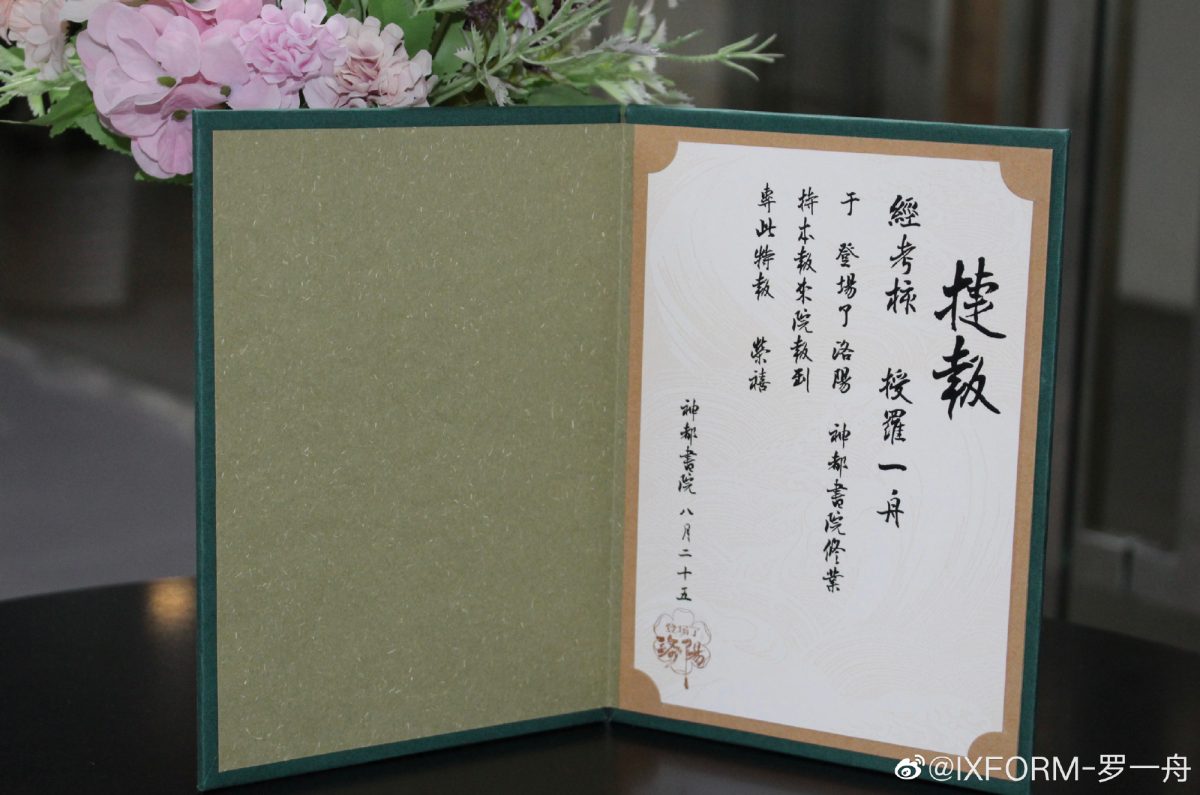 捷報
經考核 授羅一舟
于 登場了洛陽 神都書院修業
持本報來院報到
專此特報 榮禧
神都書院 八月二十五
登場了
洛陽
@IXFORM-罗一舟